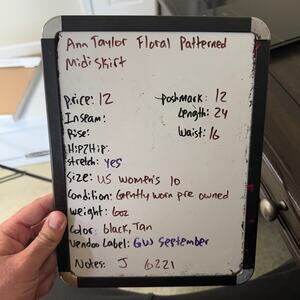 Ann Taylor Floral Patterned
Midi Skirt
price: 12 poshmark: 12
Inseam: Length: 24
Rise: Waist: 16
Hip2Hip:
stretch: yes
Size: US Women's 10
Condition: Gently worn pre owned
weight: 6oz
Color: black, Tan
Vendoo Label: GW September
Notes: J 6221